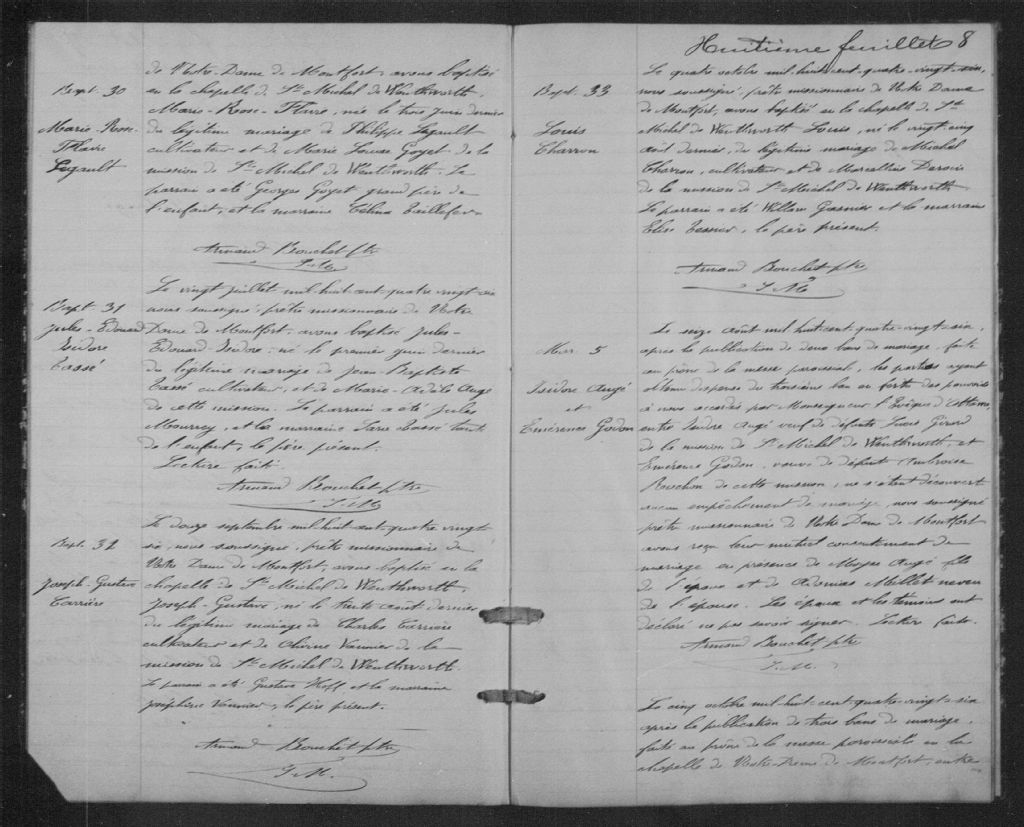 de Notre-Dame de Montfort, avons baptisé
Bapt. 30
en la chapelle de St Michel de Wenthworth,
Marie-Rose-Flavie, née le trois juin dernier
Marie-Rose-
Flavie
Legault
du légitime mariage de Philippe Legault
cultivateur et de Marie Louise Goyet de la
mission de St Michel de Wenthworth. Le
parrain a été Georges Goyet grand père de
l'enfant, et la marraine Célina Taillefer.
Armand Bouchet ptre
S.M.
Bapt. 31
Jules-Edouard
Isidore
Tassé
Le vingt juillet mil huit cent quatre vingt six
nous soussigné, prêtre missionnaire de Notre
Dame de Montfort, avons baptisé Jules-
Edouard-Isidore, né le premier juin dernier
du légitime mariage de Jean-Baptiste
Tassé cultivateur, et de Marie-Adèle Augé
de cette mission. Le parrain a été Jules
et la marraine Tassé tante
de l'enfant, le père présent.
Lecture faite.
Armand Bouchet ptre
S.M.
Bapt. 32
Joseph-Gustave
Carrière
Le douze septembre mil huit cent quatre vingt
six, nous soussigné, prêtre missionnaire de
Notre Dame de Montfort, avons baptisé en la
chapelle de St Michel de Wenthworth,
Joseph-Gustave, né le trente août dernier
du légitime mariage de Charles Carrière
cultivateur et de Vannier de la
mission de St Michel de Wenthworth.
Le parrain a été Gustave et la marraine
Joséphine Vannier, le père présent.
Armand Bouchet ptre
S.M.
Huitième feuillet 8
Bapt. 33
Louis
Charron
Le quatre octobre mil-huit-cent-quatre-vingt-six,
nous soussigné, prêtre missionnaire de Notre Dame
de Montfort, avons baptisé en la chapelle de St
Michel de Wenthworth Louis, né le vingt-cinq
août dernier, du légitime mariage de Michel
Charron, cultivateur et de
de la mission de St Michel de Wenthworth
Le parrain a été et la marraine
Tessier, le père présent.
Armand Bouchet ptre
S.M.
Marr. 5
Isidore Augé
et
Emérence Godon
Le onze août mil huit-cent-quatre-vingt-six,
après la publication de deux bans de mariage, faite
au prône de la messe paroissiale, les parties ayant
obtenu dispense du troisième ban en force des pouvoirs
à nous accordés par Monseigneur l'Evêque d'Ottawa,
entre Isidore Augé veuf de défunte Girard
de la mission de St Michel de Wentworth et
Emérence Godon, veuve de défunt Ambroise
de cette mission, ne s'étant découvert
aucun empêchement de mariage, nous soussigné
prêtre missionnaire de Notre Dame de Montfort
avons reçu leur mutuel consentement de
mariage en présence de Moyse Augé fils
de l'époux et de Adonias Millet neveu
de l'épouse. Les époux et les témoins ont
déclaré ne pas savoir signer. Lecture faite.
Armand Bouchet ptre
S.M.
Le cinq octobre mil-huit-cent-quatre-vingt-six
après la publication de trois bans de mariage,
faite au prône de la messe paroissiale en la
chapelle de Notre-Dame de Montfort, entre